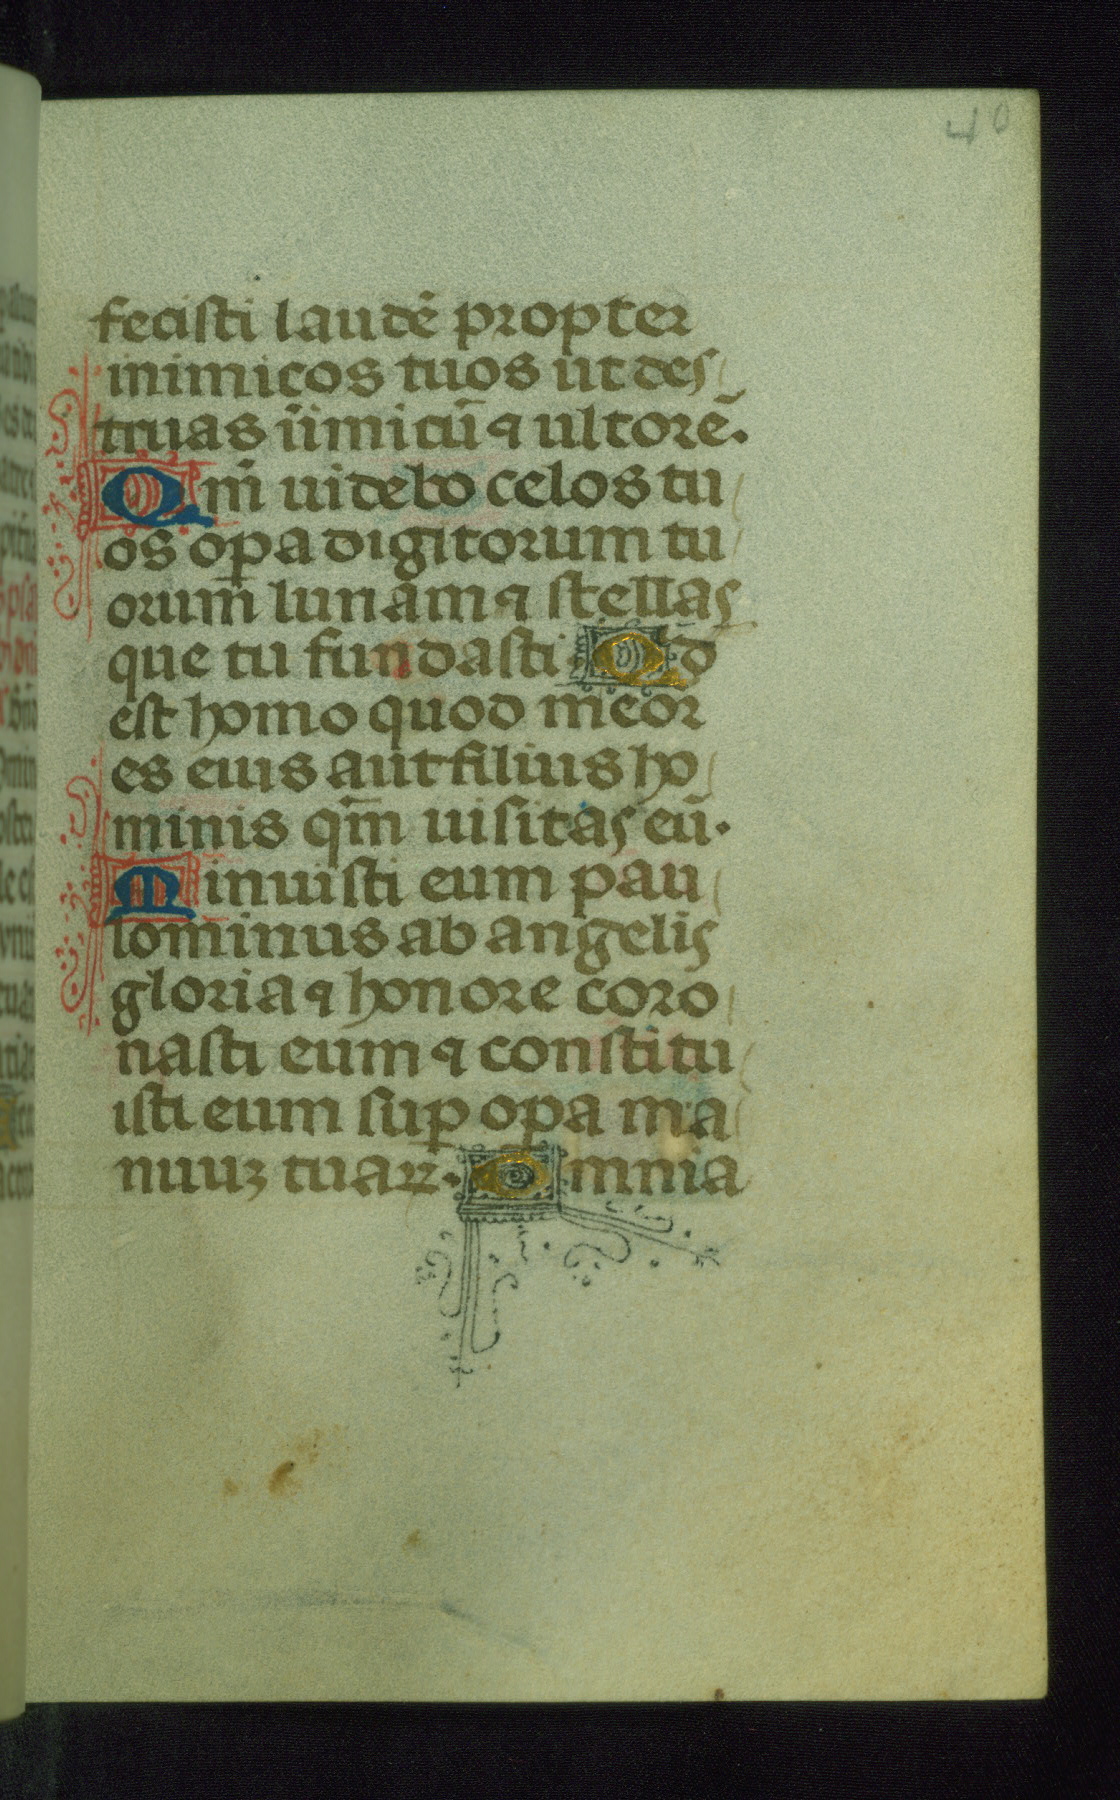 40
fecisti laudē propter
inimicos tuos ut des
truas ĩimicū ⁊ ultorē.
Qm̃ uidebo celos tu
os oꝑa digitorum tu
orum lunam ⁊ stellas
que tu fundasti Qd
est homo quod meor
es euis aut filius ho
minis qm̃ uisitas eū.
Minuisti eum pau
lominus ab angelis
gloria ⁊ honore coro
nasti eum ⁊ constitu
isti eum suꝑ oꝑa ma
nuuȝ tuaꝝ. Omnia